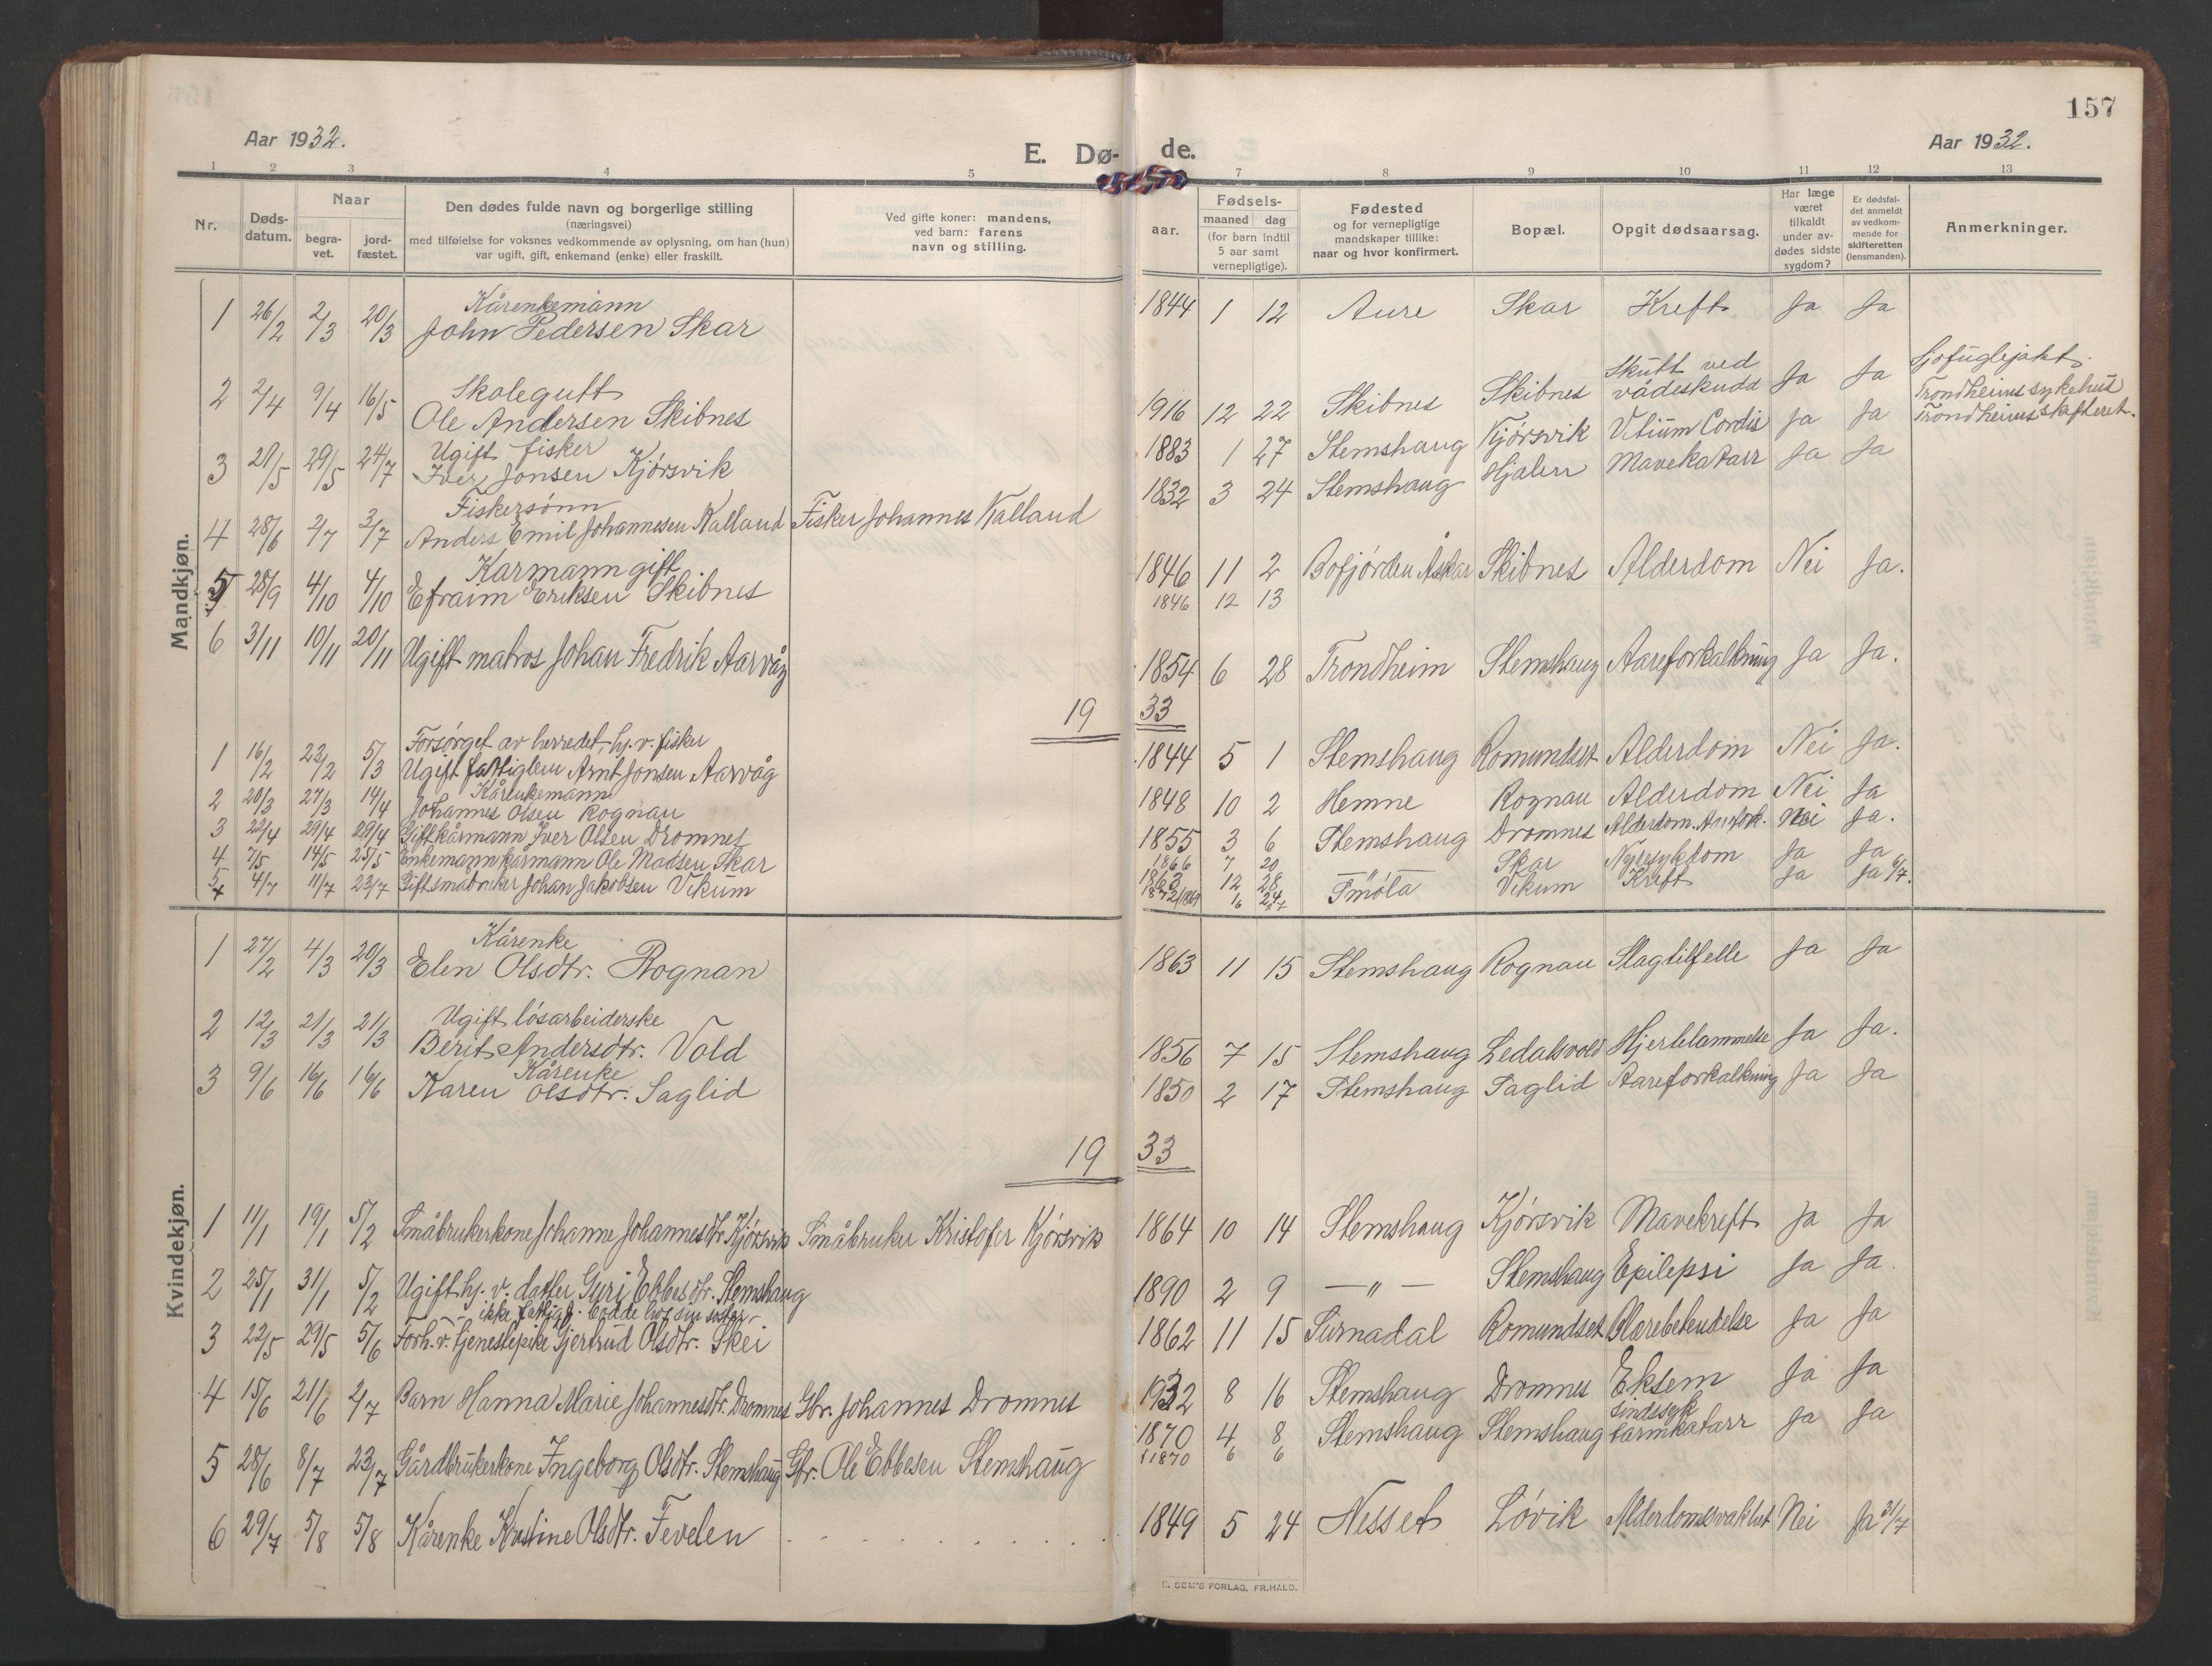 157
Aar 1932.
E. Dø- de.
Aar 1932.
1 2 3 4 5 7 8 9 10 11 12 13
Nr.
Døds-
datum.
Naar
begra-
vet.
jord-
fæstet.
Den dødes fulde navn og borgerlige stilling
(næringsvei)
med tilføielse for voksnes vedkommende av oplysning, om han (hun)
var ugift, gift, enkemand (enke) eller fraskilt.
Ved gifte koner: mandens,
ved barn: farens
navn og stilling.
aar.
Fødsels-
maaned dag
(for barn indtil
5 aar samt
vernepligtige).
Fødested
og for vernepligtige
mandskaper tillike:
naar og hvor konfirmert.
Bopæl.
Opgit dødsaarsag.
Har læge
været
tilkaldt
under av-
dødes sidste
sygdom?
Er dødsfal-
det anmeldt
av vedkom-
mende for
skifteretten
(lensmanden).
Anmerkninger.
Mandkjøn.
Kårenkemann
1 26/2 2/3 20/3 John Pedersen Skar 1844 1 12 Aure Skar Kreft Ja Ja
Skolegutt
2 2/4 9/4 16/5 Ole Andersen Skibnes 1916 12 22 Skibnes Skibnes Skutt ved vådeskudd Ja Ja Sjøfuglejakt.
Ugift fisker
3 21/5 29/5 24/7 Iver Jonsen Kjørsvik 1883 1 27 Stemshaug Kjørsvik Vitium Cordis Ja Ja Trondheims sykehus
Trondheims skifteret.
Fiskersønn
4 28/6 2/7 2/7 Anders Emil Johannesen Kalland Fisker Johannes Kalland 1832 3 24 Stemshaug Hjalen Mavekatarr Ja Ja
Karmann gift
5 28/9 4/10 4/10 Efraim Eriksen Skibnes 1846 11 2 Bofjorden Åsskar Skibnes Alderdom Nei Ja.
1846 12 13
6 3/11 10/11 20/11 Ugift matros Johan Fredrik Aarvåg 1854 6 28 Trondheim Stemshaug Aareforkalkning Ja Ja.
19 33
Forsørget av herredet, hj. v. fisker
1 16/2 23/2 5/3 Ugift fattiglem Arnt Jonsen Aarvåg 1844 5 1 Stemshaug Romundset Alderdom Nei Ja.
Kårenkemann
2 20/3 27/3 14/4 Johannes Olsen Rognan 1848 10 2 Hemne Rognan Alderdom Nei Ja
3 22/4 29/4 29/4 Gift kårmann Iver Olsen Dromnes 1855 3 6 Stemshaug Dromnes Alderdom. Aarefork. Nei Ja.
4 7/5 14/5 25/5 Enkemann kårmann Ole Madsen Skar 1866 7 20 — " — Skar Nyresykdom Ja Ja
1863 12 28
5 4/7 11/7 23/7 Gift småbruker Johan Jakobsen Vikum 1872/1869 Smøla Vikum Kreft Ja Ja 6/7.
Kvindekjøn.
Kårenke
1 27/2 4/3 20/3 Elen Olsdtr. Rognan 1863 11 15 Stemshaug Rognan Slagtilfelle Ja Ja
Ugift løsarbeiderske
2 12/3 21/3 21/3 Berit Andersdtr. Vold 1856 7 15 Stemshaug Ledalsvold Hjertelammelse Ja Ja.
Kårenke
3 9/6 16/6 16/6 Karen Olsdtr. Saglid 1850 2 17 Stemshaug Saglid Aareforkalkning Ja Ja
19 33
1 11/1 19/1 5/2 Småbrukerkone Johanne Johannesdtr Kjørsvik Småbruker Kristofer Kjørsvik 1864 10 14 Stemshaug Kjørsvik Mavekreft Ja Ja
2 25/1 31/1 5/2 Ugift hj. v. datter Guri Ebbesdtr. Stemshaug 1890 2 9 — " — Stemshaug Epilepsi Ja Ja.
ikke fattigf. bodde hos sin søster
3 22/5 29/5 5/6 Forh. v. tjenestepike Gjertrud Olsdtr. Skei 1862 11 15 Surnadal Romundset Blærebetendelse Ja Ja
4 15/6 21/6 2/7 Barn Hanna Marie Johannesdtr. Dromnes Gbr. Johannes Dromnes 1932 8 16 Stemshaug Dromnes Eksem Ja Ja
Sindssyk
5 28/6 8/7 23/7 Gårdbrukerkone Ingeborg Olsdtr. Stemshaug Gbr. Ole Ebbesen Stemshaug 1870 4 8 Stemshaug Stemshaug tarmkatarr Ja Ja
1870 6 6
6 29/7 5/8 5/8 Kårenke Kristine Olsdtr. Fevelen 1849 5 24 Nesset Løvik Alderdomssvakhet Nei Ja 31/7
E. SEM'S FORLAG, FR.HALD.